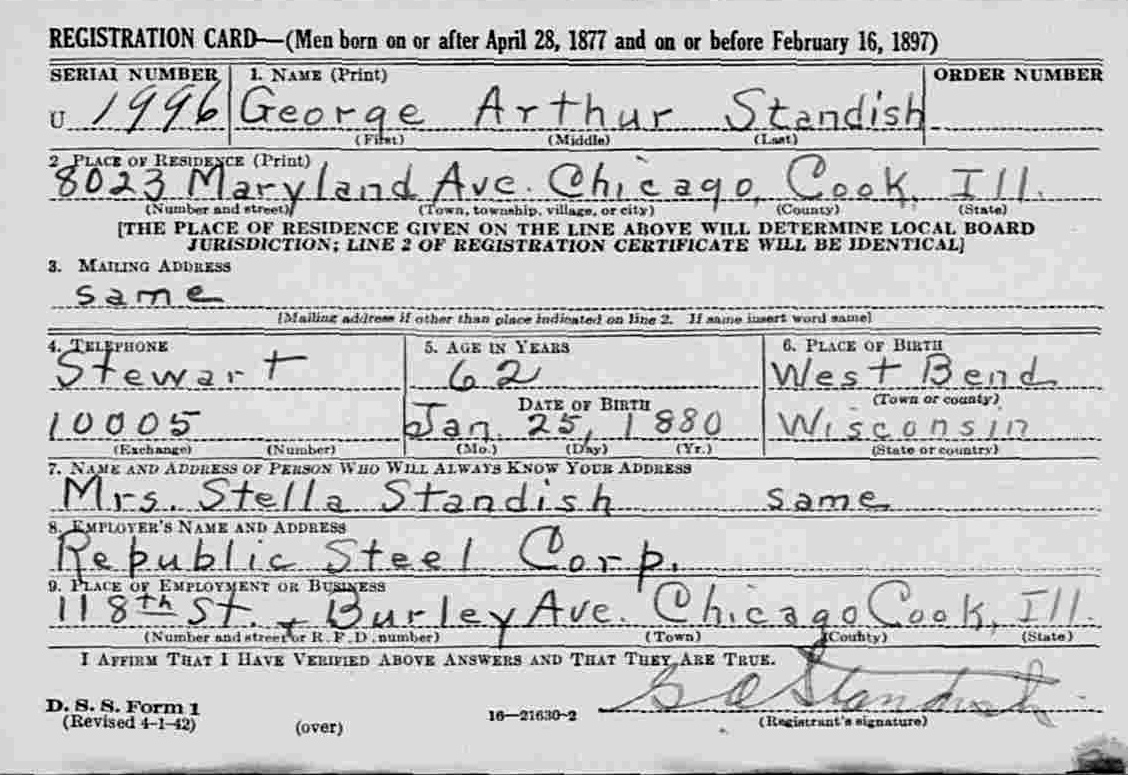 REGISTRATION CARD—(Men born on or after April 28, 1877 and on or before February 16, 1897)
SERIAL NUMBER 1. NAME (Print) ORDER NUMBER
U 1996 George Arthur Standish
(First) (Middle) (Last)
2 PLACE OF RESIDENCE (Print)
8023 Maryland Ave. Chicago, Cook, Ill.
(Number and street) (Town, township, village, or city) (County) (State)
[THE PLACE OF RESIDENCE GIVEN ON THE LINE ABOVE WILL DETERMINE LOCAL BOARD
JURISDICTION; LINE 2 OF REGISTRATION CERTIFICATE WILL BE IDENTICAL]
3. MAILING ADDRESS
same
[Mailing address if other than place indicated on line 2. If same insert word same]
4. TELEPHONE 5. AGE IN YEARS 6. PLACE OF BIRTH
Stewart 62 West Bend
DATE OF BIRTH (Town or county)
10005 Jan. 25, 1880 Wisconsin
(Exchange) (Number) (Mo.) (Day) (Yr.) (State or country)
7. NAME AND ADDRESS OF PERSON WHO WILL ALWAYS KNOW YOUR ADDRESS
Mrs. Stella Standish same
8. EMPLOYER'S NAME AND ADDRESS
Republic Steel Corp.
9. PLACE OF EMPLOYMENT OR BUSINESS
118th St. + Burley Ave. Chicago Cook, Ill.
(Number and street or R. F. D. number) (Town) (County) (State)
I AFFIRM THAT I HAVE VERIFIED ABOVE ANSWERS AND THAT THEY ARE TRUE.
G A Standish
D. S. S. Form 1
(Revised 4-1-42) (over) 16—21630-2 (Registrant's signature)